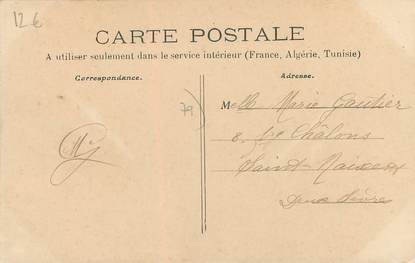 12 €
CARTE POSTALE
A utiliser seulement dans le service intérieur (France, Algérie, Tunisie)
Correspondance.
Adresse.
79)
Melle Marie Gautier
8, Châlons
Saint-Maixent
Deux Sèvres